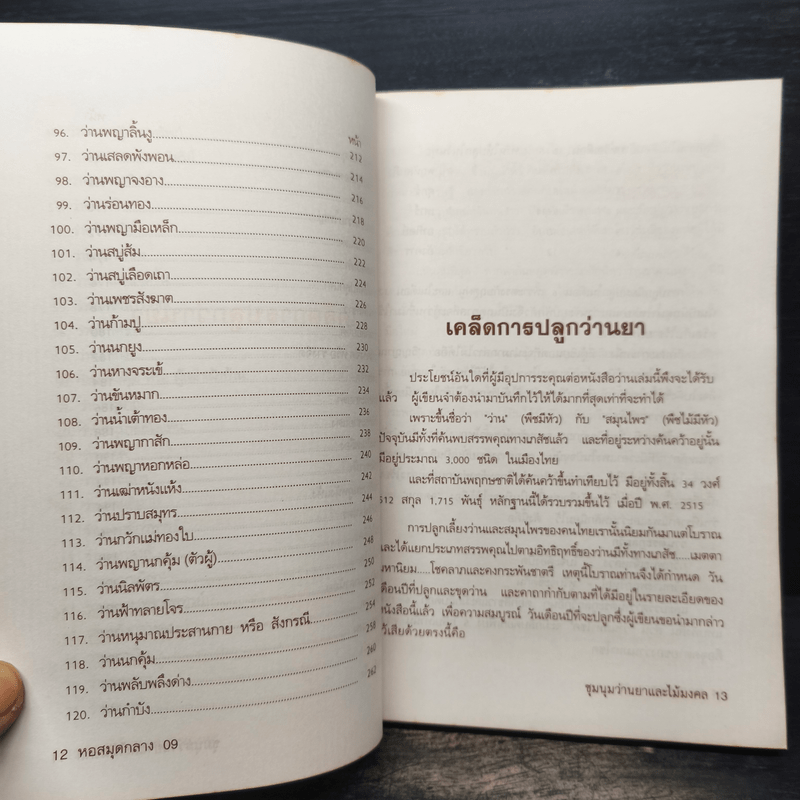 หน้า
96. ว่านพญาลิ้นงู 212
97. ว่านเสลดพังพอน 214
98. ว่านพญาจงอาง 216
99. ว่านร่อนทอง 218
100. ว่านพญามือเหล็ก 220
101. ว่านสบู่ส้ม 222
102. ว่านสบู่เลือดเถา 224
103. ว่านเพชรสังฆาต 226
104. ว่านก้ามปู 228
105. ว่านนกยูง 230
106. ว่านหางจระเข้ 232
107. ว่านขันหมาก 234
108. ว่านน้ำเต้าทอง 236
109. ว่านพญากาสัก 238
110. ว่านพญาหอกหล่อ 240
111. ว่านเฒ่าหนังแห้ง 242
112. ว่านปราบสมุทร 244
113. ว่านกวักแม่ทองใบ 246
114. ว่านพญานกคุ้ม (ตัวผู้) 248
115. ว่านนิลพัตร 250
116. ว่านฟ้าทลายโจร 252
117. ว่านหนุมาณประสานกาย หรือ สังกรณี 254
118. ว่านนกคุ้ม 258
119. ว่านพลับพลึงด่าง 260
120. ว่านกำบัง 262
12 หอสมุดกลาง 09
เคล็ดการปลูกว่านยา
ประโยชน์อันใดที่ผู้มีอุปการระคุณต่อหนังสือว่านเล่มนี้พึงจะได้รับ
แล้ว ผู้เขียนจำต้องนำมาบันทึกไว้ให้ได้มากที่สุดเท่าที่จะทำได้
เพราะขึ้นชื่อว่า "ว่าน" (พืชมีหัว) กับ "สมุนไพร" (พืชไม้มีหัว)
ปัจจุบันมีทั้งที่ค้นพบสรรพคุณทางเภสัชแล้ว และที่อยู่ระหว่างค้นคว้าอยู่นั้น
มีอยู่ประมาณ 3,000 ชนิด ในเมืองไทย
และที่สถาบันพฤกษชาติได้ค้นคว้าขึ้นทำเทียบไว้ มีอยู่ทั้งสิ้น 34 วงศ์
512 สกุล 1,715 พันธุ์ หลักฐานนี้ได้รวบรวมขึ้นไว้ เมื่อปี พ.ศ. 2515
การปลูกเลี้ยงว่านและสมุนไพรของคนไทยเรานั้นนิยมกันมาแต่โบราณ
และได้แยกประเภทสรรพคุณไปตามอิทธิฤทธิ์ของว่านมีทั้งทางเภสัช....เมตตา
มหานิยม....โชคลาภและคงกระพันชาตรี เหตุนี้โบราณท่านจึงได้กำหนด วัน
เดือนปีที่ปลูกและขุดว่าน และคาถากำกับตามที่ได้มีอยู่ในรายละเอียดของ
หนังสือนี้แล้ว เพื่อความสมบูรณ์ วันเดือนปีที่จะปลูกซึ่งผู้เขียนขอนำมากล่าว
ไว้เสียด้วยตรงนี้คือ
ชุมนุมว่านยาและไม้มงคล 13